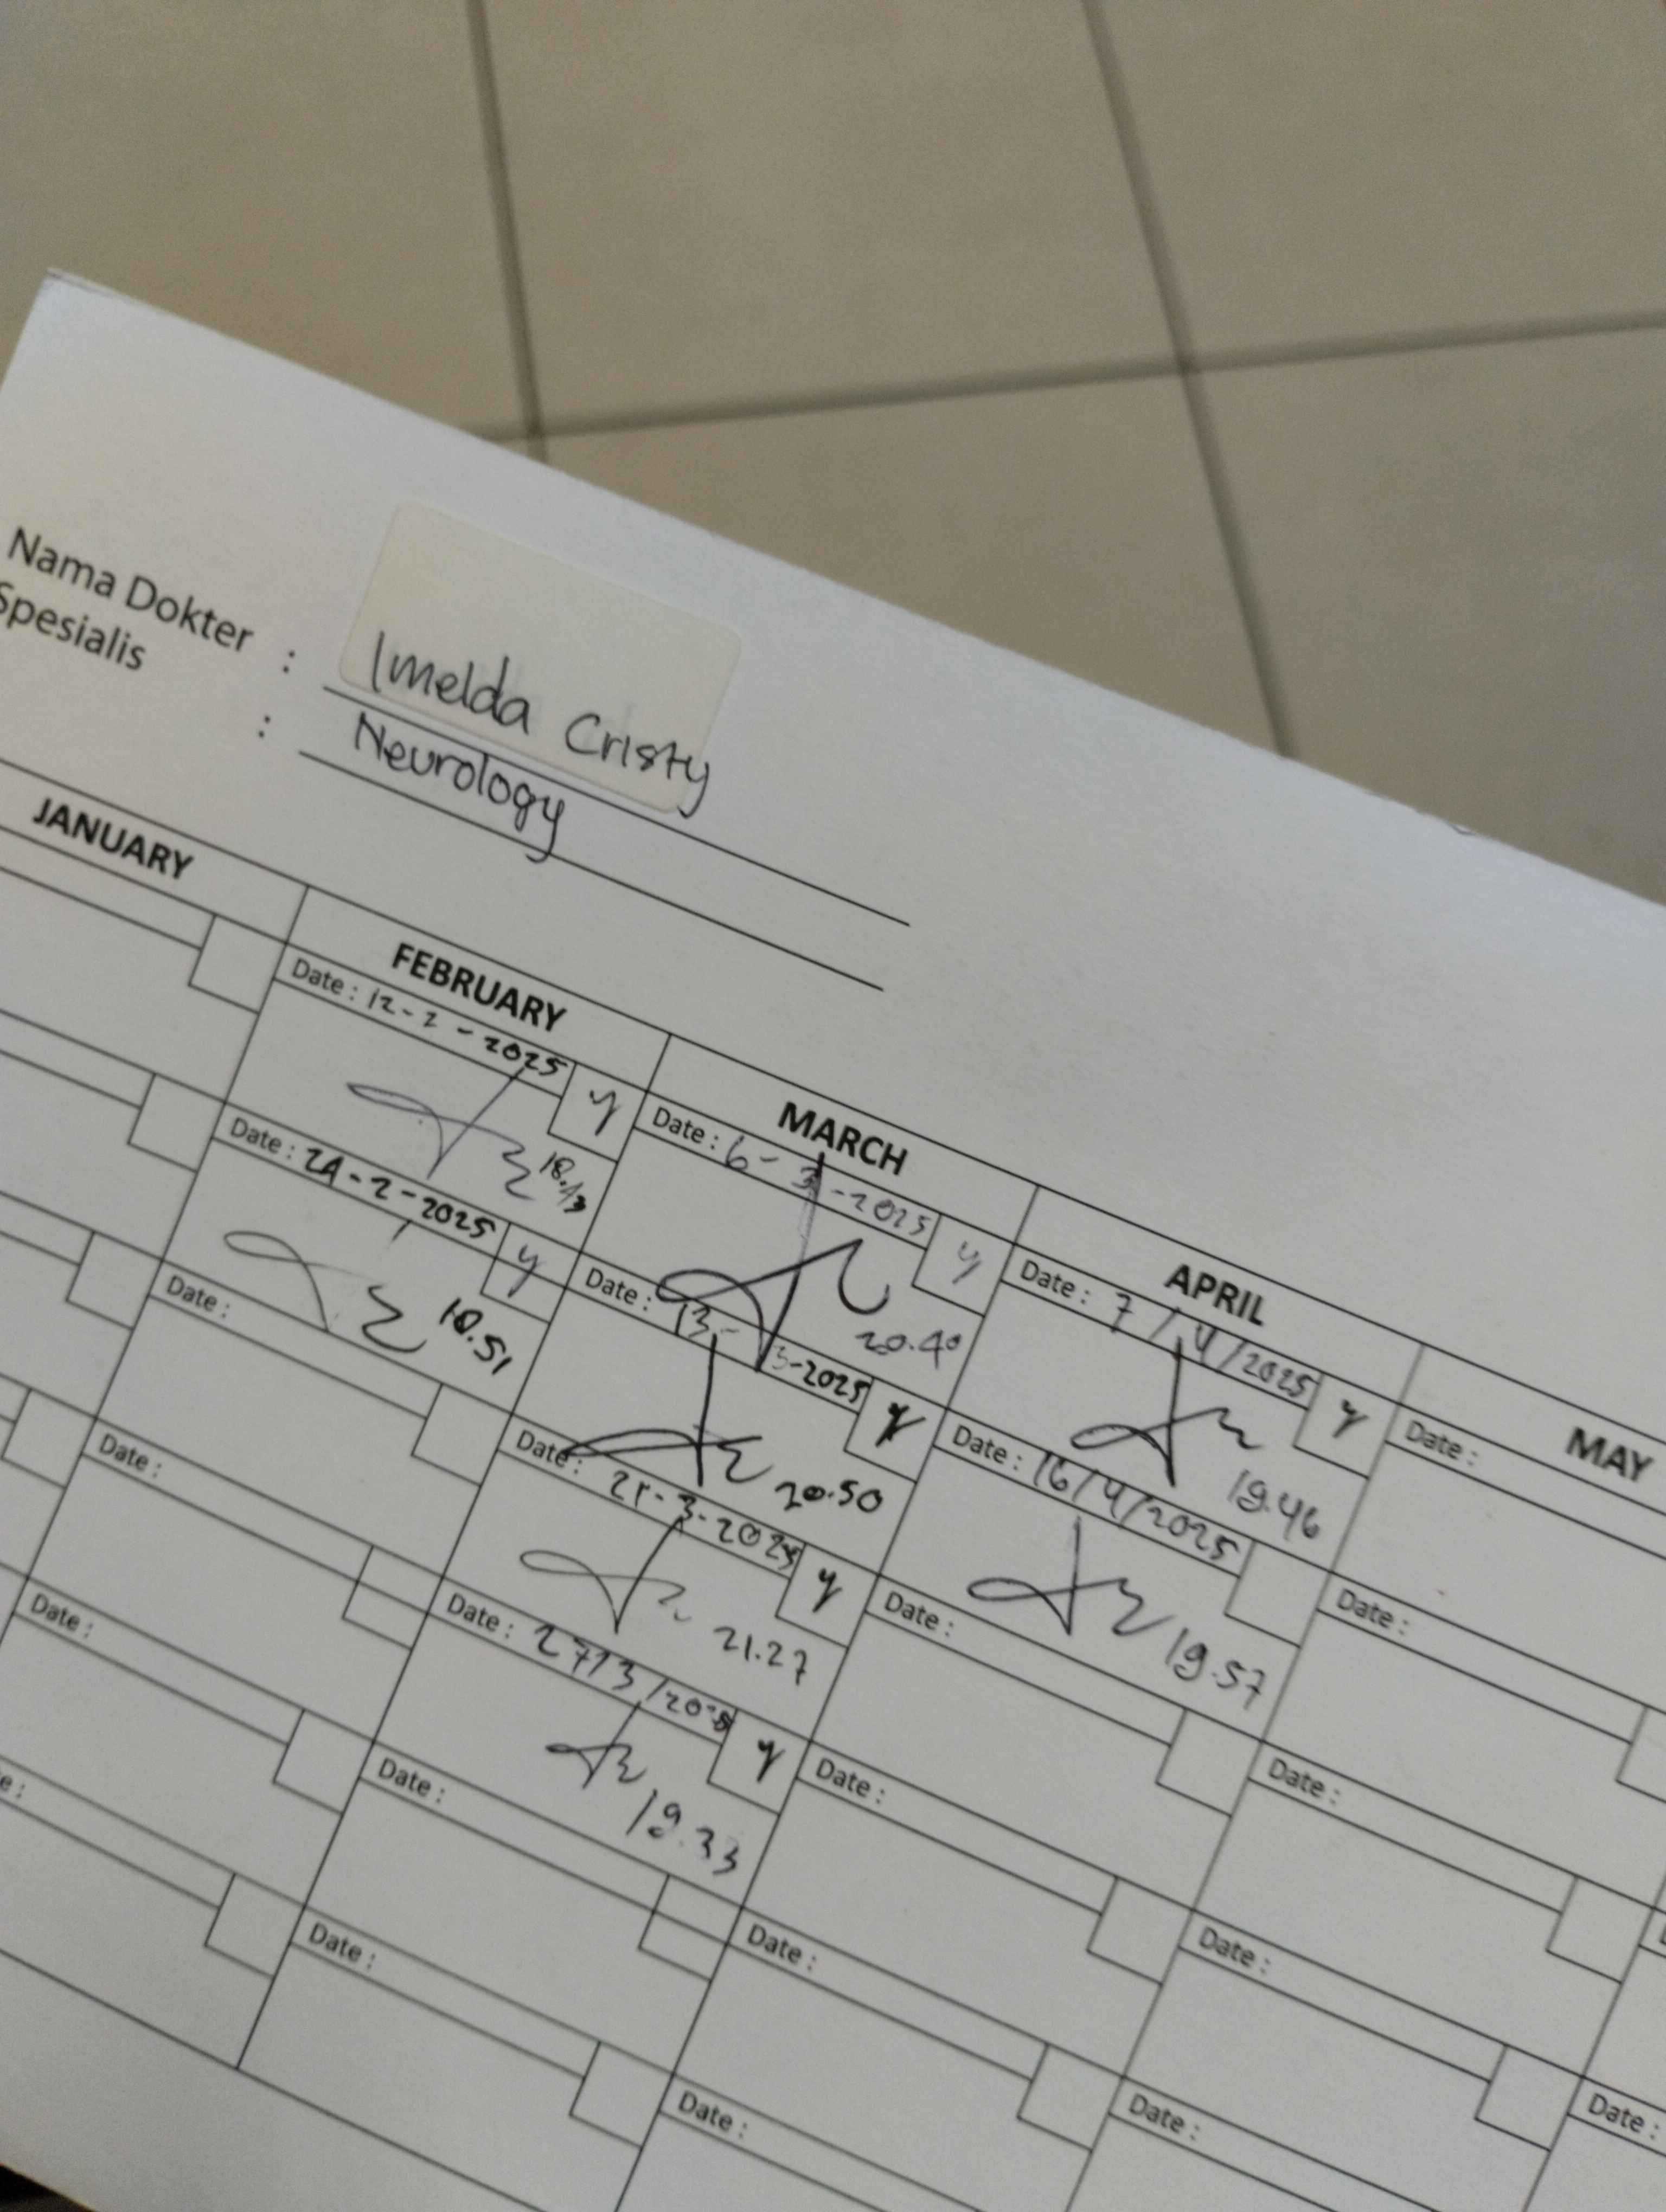 Nama Dokter : Imelda Cristy
Spesialis : Neurology
JANUARY
FEBRUARY
Date : 12-2-2025 y
18.13
Date : 24-2-2025 y
18.51
Date :
Date :
Date :
Date :
MARCH
Date : 6-3-2025 y
20.40
Date : 13-3-2025 y
20.50
Date : 21-3-2025 y
21.27
Date : 27/3/2025 y
19.33
Date :
Date :
APRIL
Date : 7/4/2025 y
19.46
Date : 16/4/2025
19.57
Date :
Date :
Date :
Date :
MAY
Date :
Date :
Date :
Date :
Date :
Date :